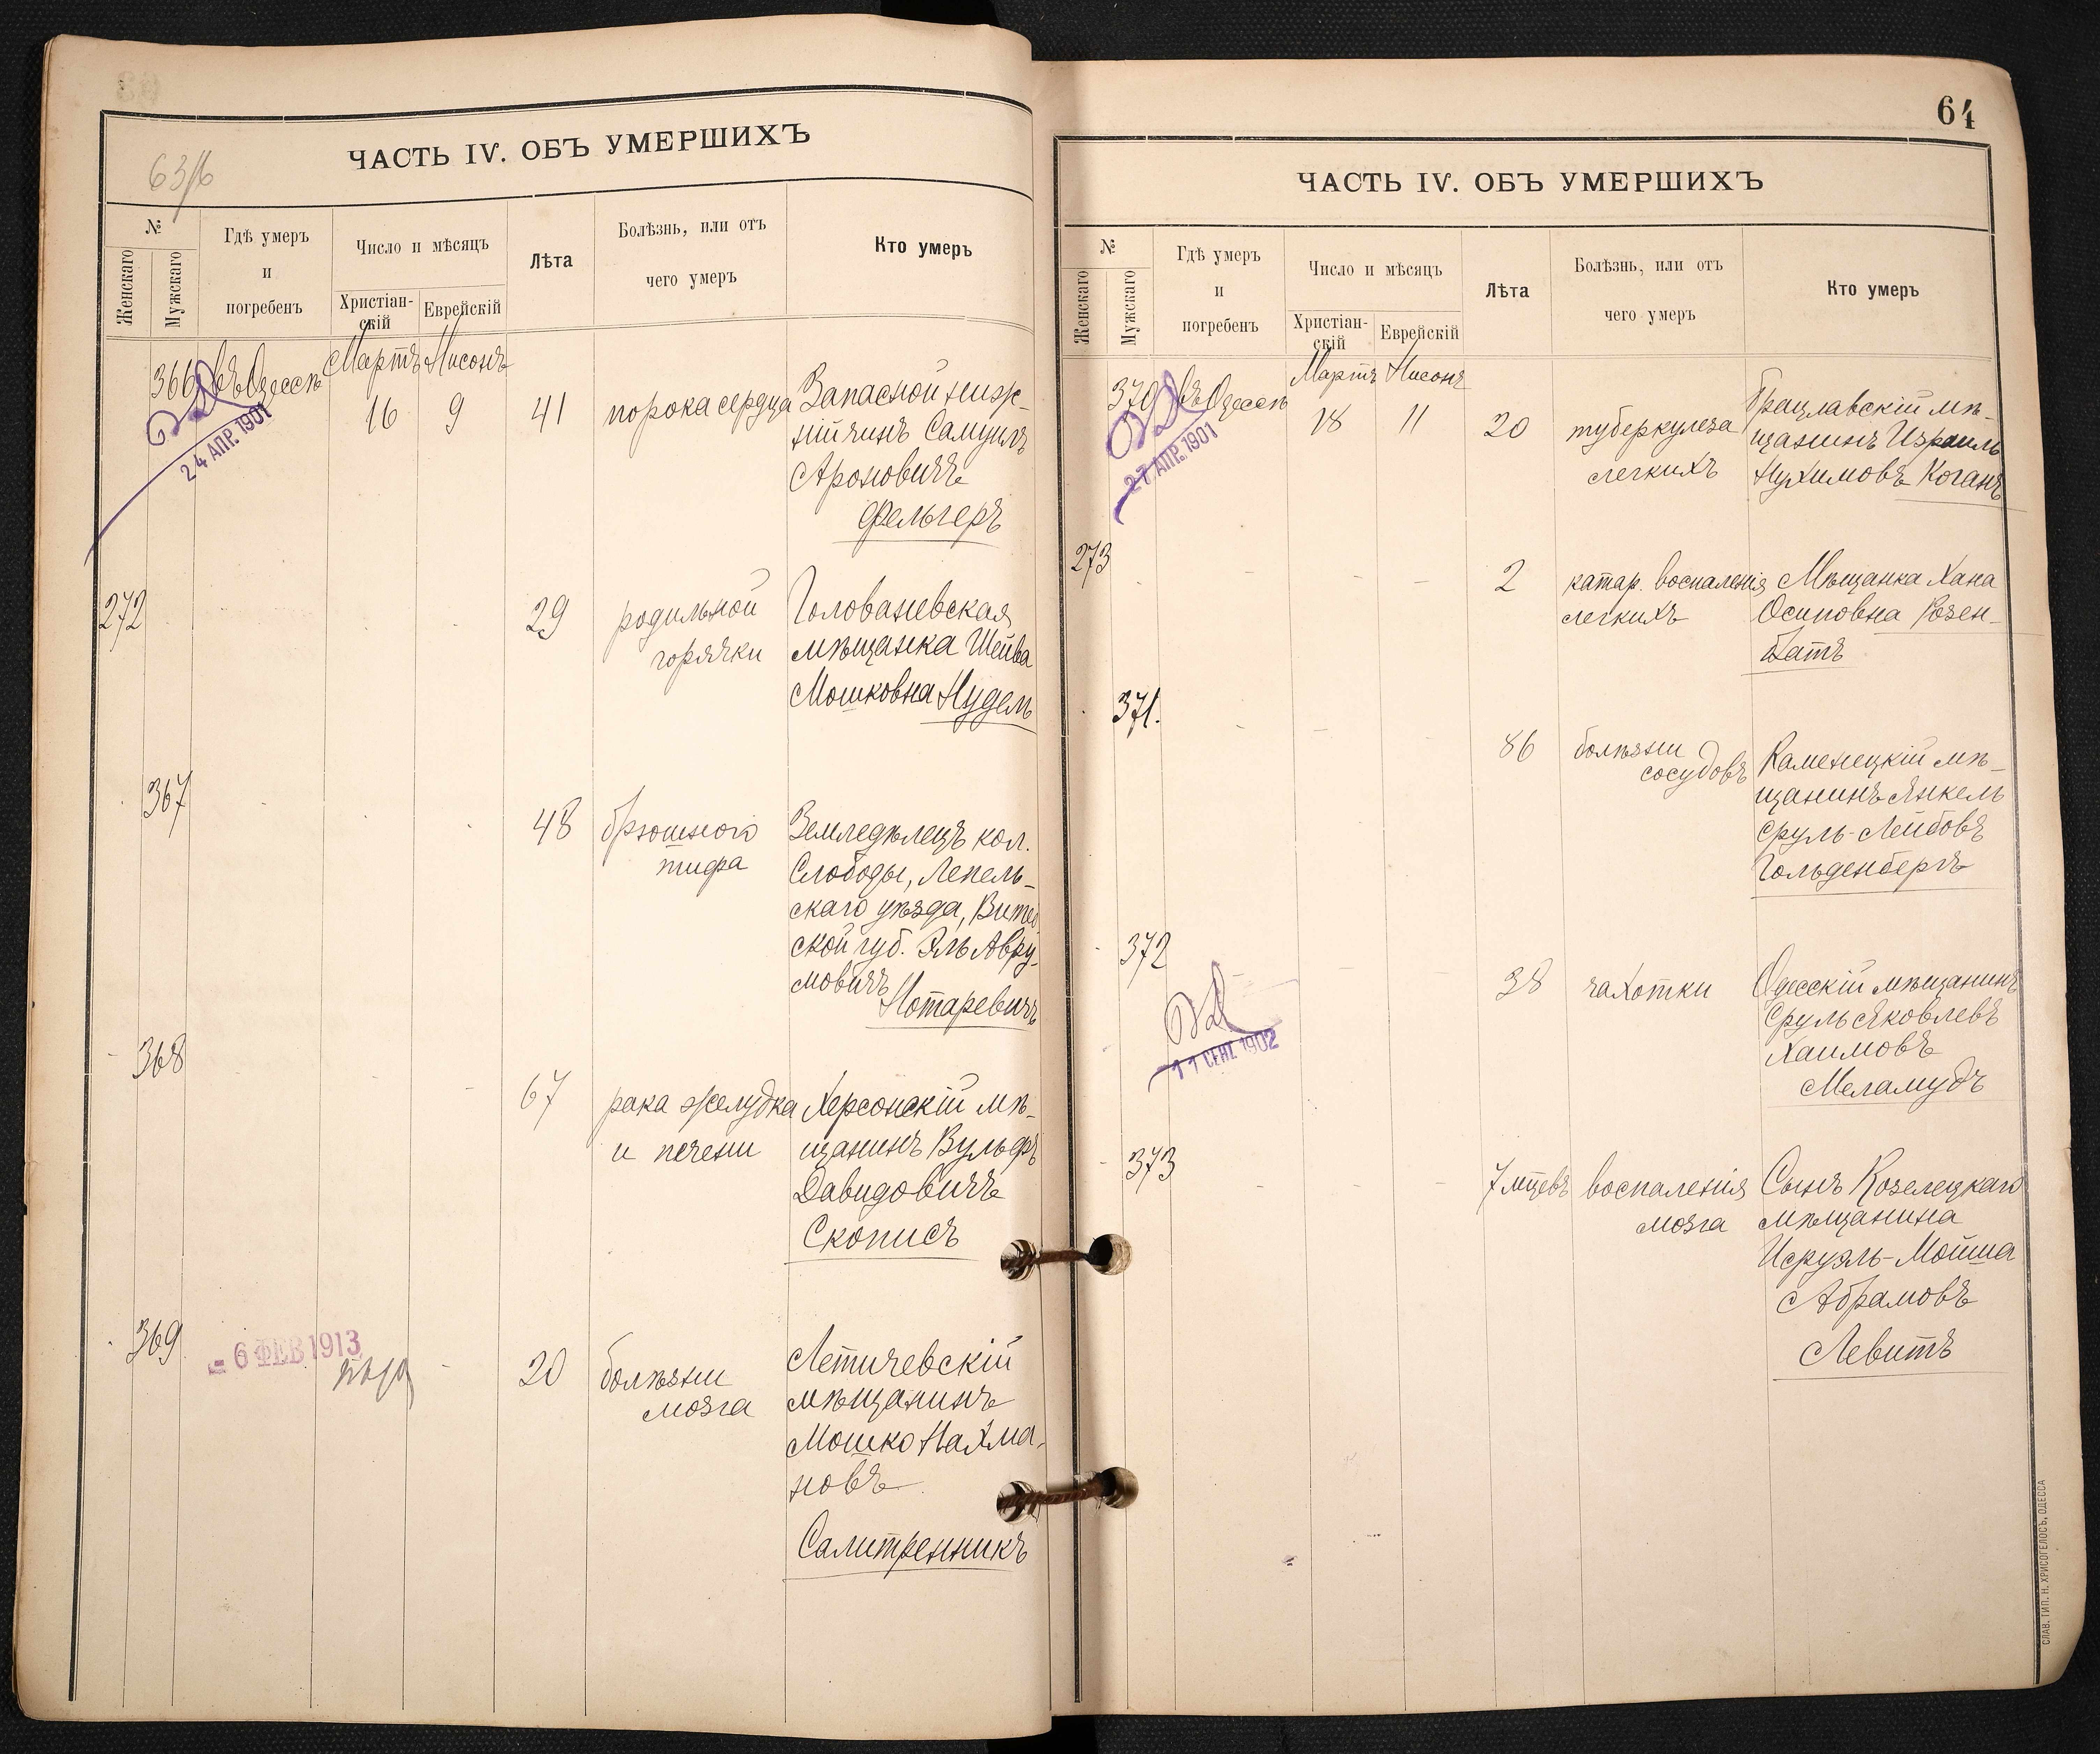 63/б
ЧАСТЬ IV. ОБЪ УМЕРШИХЪ
№
Женскаго
Мужскаго
Гдѣ умеръ
и
погребенъ
Число и мѣсяцъ
Христіан-
скій
Еврейскій
Лѣта
Болѣзнь, или отъ
чего умеръ
Кто умеръ
366 въ Одессѣ Мартъ Нисонъ
16 9 41 порока сердца Запасной ниж-
ній чинъ Самуилъ
Ароновичъ
Фельгеръ
24 АПР. 1901
272
29 родильной Голованевская
горячки мѣщанка Шейва
Мошковна Нудель
367
48 брюшного Земледѣлецъ кол.
тифа Слободы, Лепель-
скаго уѣзда, Витеб
ской губ. Эль Авру-
мовичъ
Нотаревичъ
368
67 рака желудка Херсонскій мѣ-
и печени щанинъ Вульфъ
Давидовичъ
Скописъ
369
- 6 ФЕВ 1913
20 болѣзни Летичевскій
мозга мѣщанинъ
Мошко Нахма-
новъ
Салитренникъ
64
ЧАСТЬ IV. ОБЪ УМЕРШИХЪ
№
Женскаго
Мужскаго
Гдѣ умеръ
и
погребенъ
Число и мѣсяцъ
Христіан-
скій
Еврейскій
Лѣта
Болѣзнь, или отъ
чего умеръ
Кто умеръ
370 въ Одессѣ Мартъ Нисонъ
18 11 20 туберкулеза Брацлавскій мѣ-
легкихъ щанинъ Израиль
Нухимовъ Коганъ
27 АПР. 1901
273
2 катар. воспаленія Мѣщанка Хана
легкихъ Осиповна Розен-
батъ
371.
86 болѣзни Каменецкій мѣ-
сосудовъ щанинъ Янкель
Сруль-Лейбовъ
Гольденбергъ
372
38 чахотки Одесскій мѣщанинъ
Сруль Яковлевъ
Хаимовъ
Меламудъ
11 СЕН. 1902
373
7 мцевъ воспаленія Сынъ Козелецкаго
мозга мѣщанина
Исруэль-Мойша
Абрамовъ
Левитъ
СЛАВ. ТИП. Н. ХРИСОГЕЛОСЪ, ОДЕССА